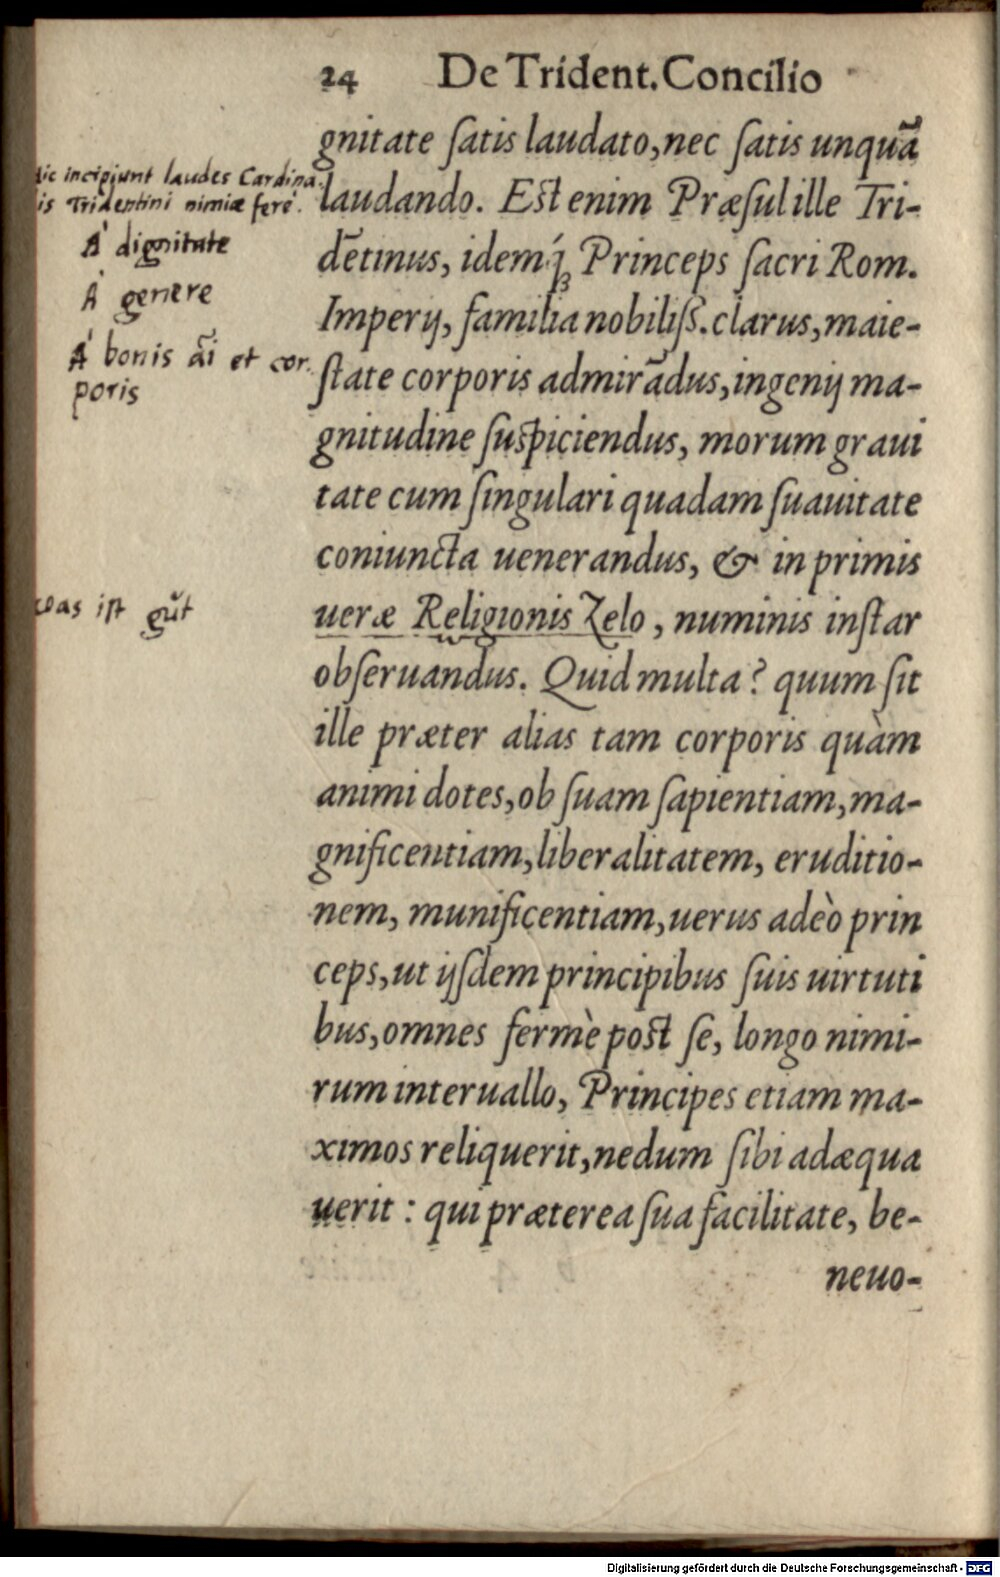 24 De Trident. Concilio
gnitate ſatis laudato, nec ſatis unquã
laudando. Est enim Præſul ille Tri-
dẽtinus, idemq́ꝫ Princeps ſacri Rom.
Imperij, familia nobiliſſ. clarus, maie-
ſtate corporis admirãdus, ingenij ma-
gnitudine ſuſpiciendus, morum graui
tate cum ſingulari quadam ſuauitate
coniuncta uenerandus, & in primis
ueræ Religionis Zelo, numinis inſtar
obſeruandus. Quid multa? quum ſit
ille præter alias tam corporis quàm
animi dotes, ob ſuam ſapientiam, ma-
gnificentiam, liberalitatem, eruditio-
nem, munificentiam, uerus adeò prin
ceps, ut ijſdem principibus ſuis uirtuti
bus, omnes fermè post ſe, longo nimi-
rum interuallo, Principes etiam ma-
ximos reliquerit, nedum ſibi adæqua
uerit: qui præterea ſua facilitate, be-
neuo-
Hic incipiunt laudes Cardina
is Tridentini nimiæ ferè.
À dignitate
À genere
À bonis ãi et cor
poris
was iſt gůt
Digitalisierung gefördert durch die Deutsche Forschungsgemeinschaft - DFG